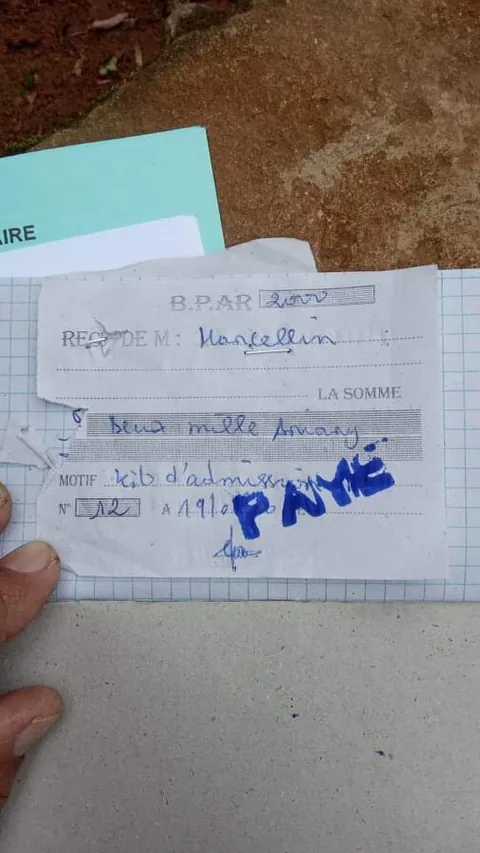 AIRE
B.P.AR 2000
REÇU DE M : Marcellin
LA SOMME
Deux mille Ariary
MOTIF kit d'admission
N° 12 A 19/0
PAYÉ